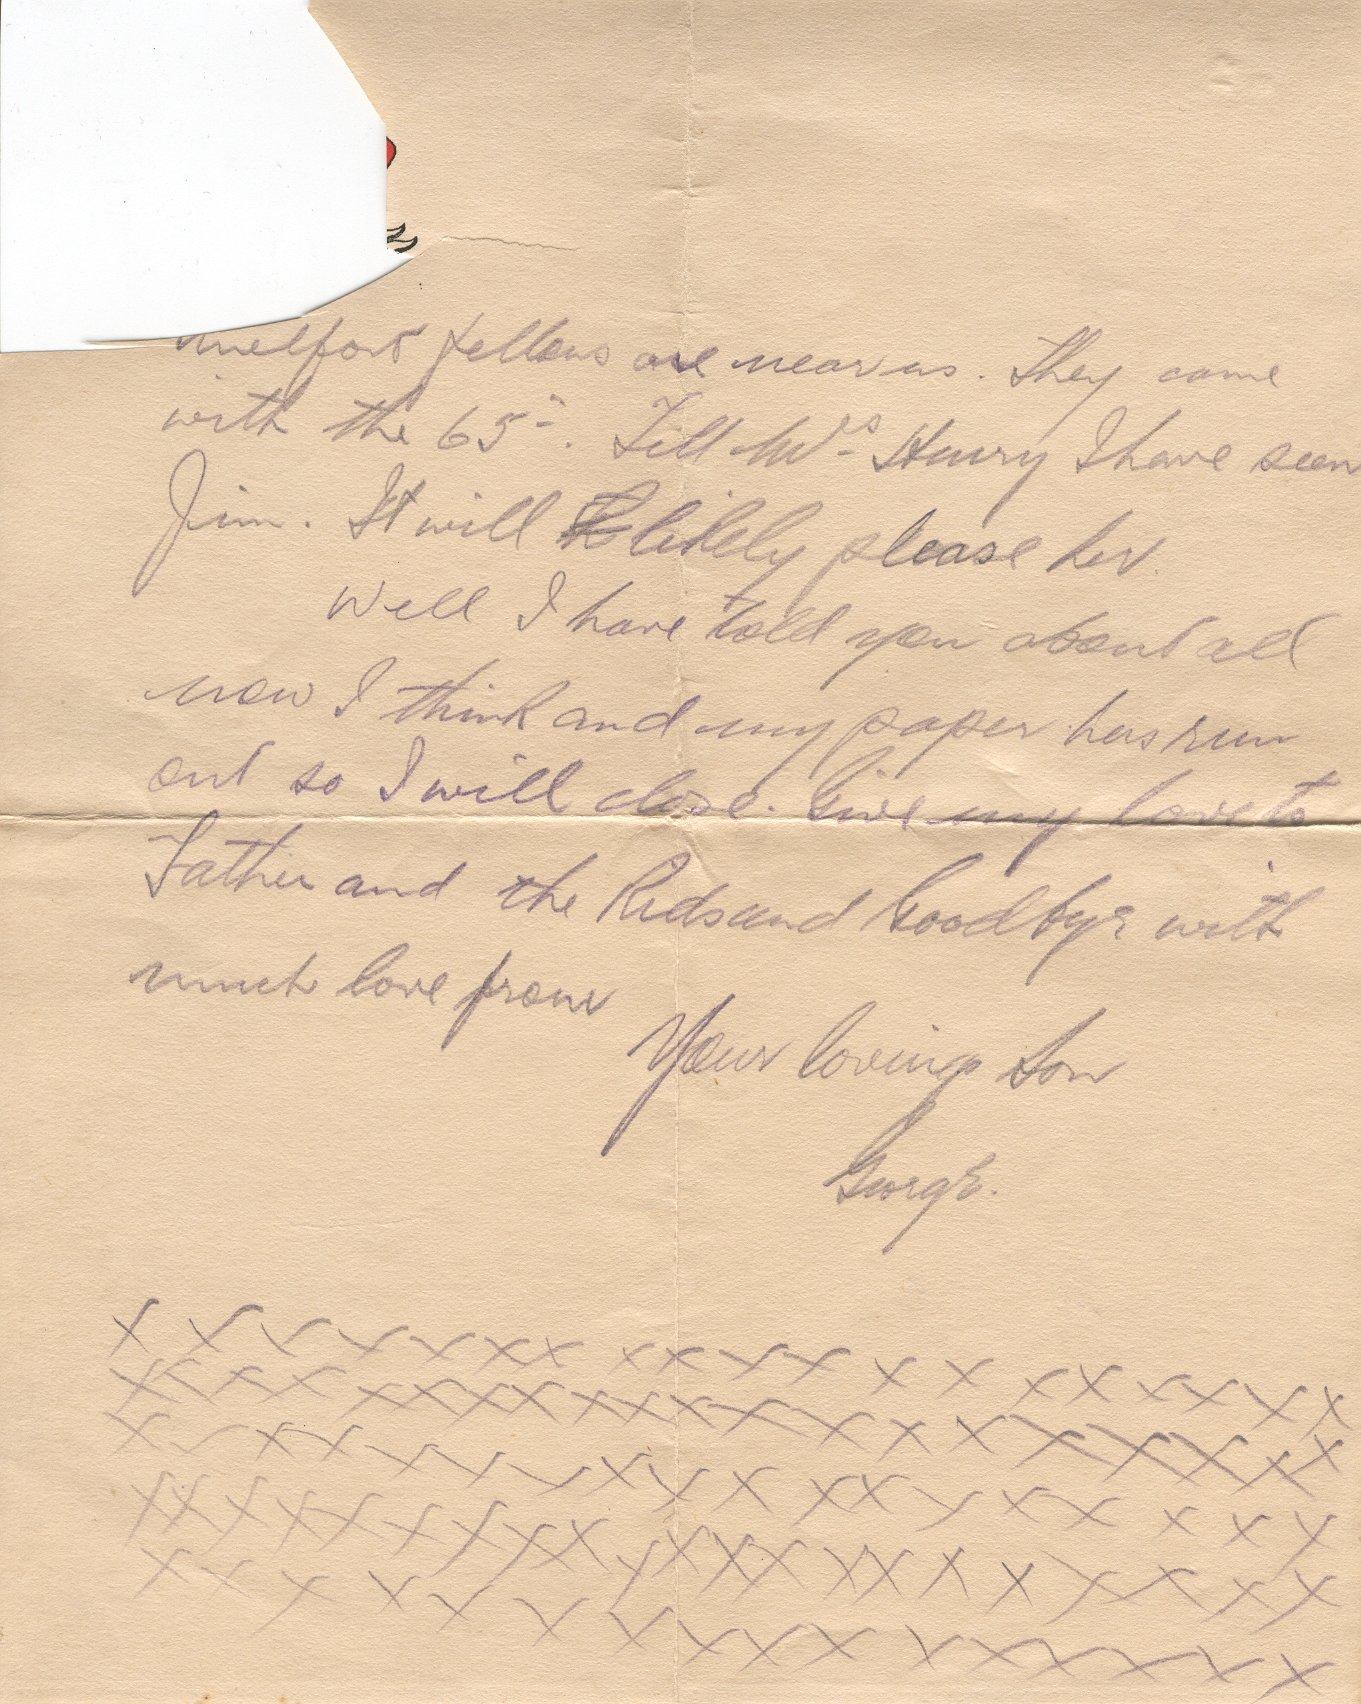 Melfort fellows are near us. They came
with the 65th. Tell Mrs Henry I have seen
Jim. It will likely please her.
Well I have told you about all
now I think and my paper has run
out so I will close. Give my love to
Father and the Kids and Good bye with
much love from
Your loving Son
George.
X X X X X X X X X X X X X X X X X X X
X X X X X X X X X X X X X X X X X X X
X X X X X X X X X X X X X X X X X
X X X X X X X X X X X X X X X X X X X X
X X X X X X X X X X X X X X X X